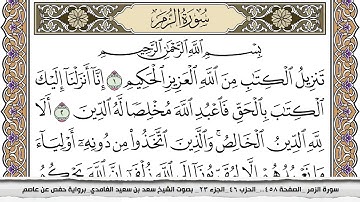 سُورَةُ الزُّمَرِ
بِسْمِ اللَّهِ الرَّحْمَٰنِ الرَّحِيمِ
تَنزِيلُ الْكِتَٰبِ مِنَ اللَّهِ الْعَزِيزِ الْحَكِيمِ ١ إِنَّا أَنزَلْنَا إِلَيْكَ
الْكِتَٰبَ بِالْحَقِّ فَاعْبُدِ اللَّهَ مُخْلِصًا لَّهُ الدِّينَ ٢ أَلَا
لِلَّهِ الدِّينُ الْخَالِصُ وَالَّذِينَ اتَّخَذُوا مِن دُونِهِ أَوْلِيَاءَ
مَا نَعْبُدُهُمْ إِلَّا لِيُقَرِّبُونَا إِلَى اللَّهِ زُلْفَىٰ إِنَّ اللَّهَ يَحْكُمُ
سورة الزمر _ الصفحة ٤٥٨ _ الحزب ٤٦ _ الجزء ٢٣ _ بصوت الشيخ سعد بن سعيد الغامدي _ برواية حفص عن عاصم